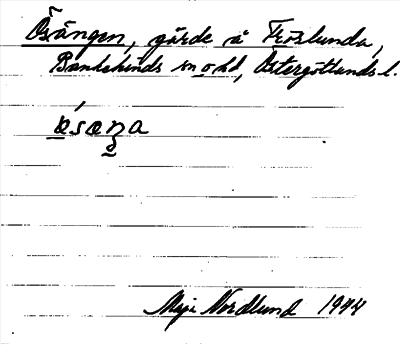 Ösängen, gärde å Fröslunda,
Bankekinds sn o hd, Östergötlands l.
Maja Nordlund 1944